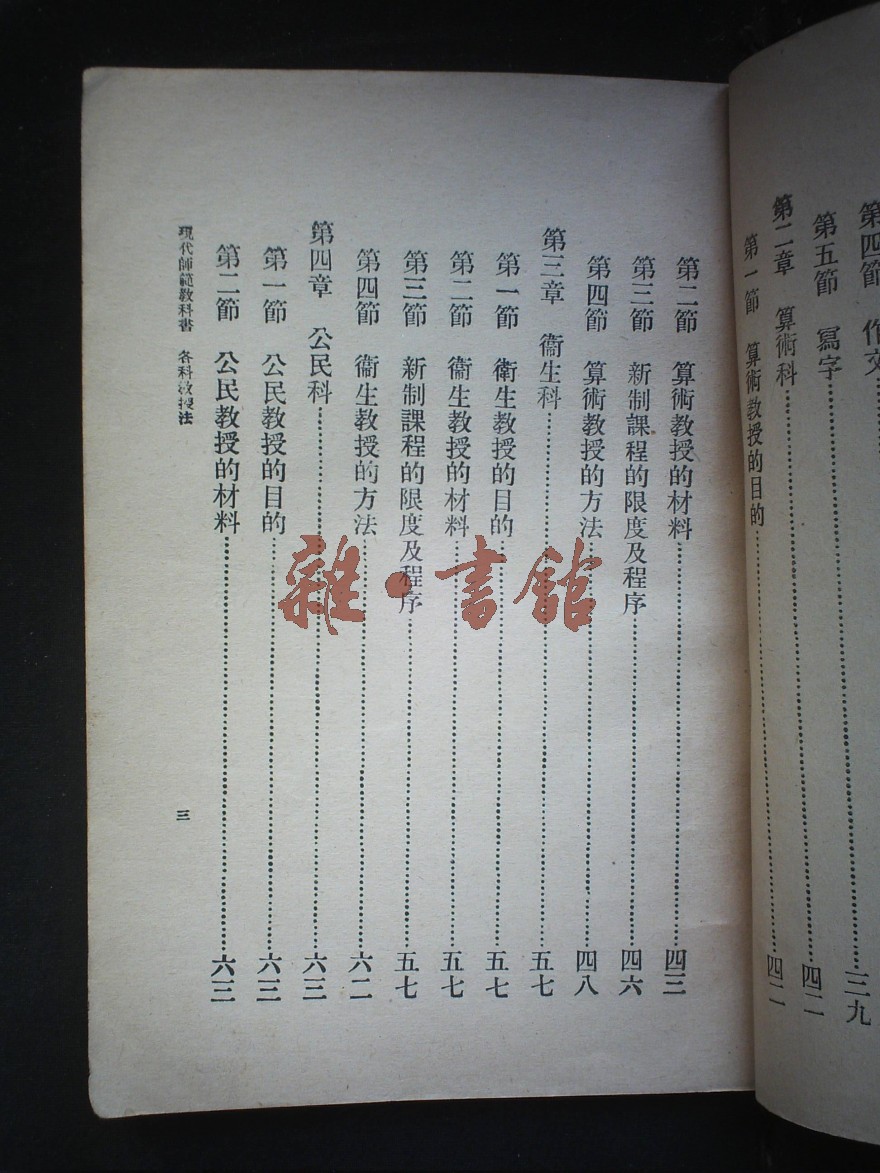 第四節　作文……三九
第五節　寫字……四二
第二章　算術科……四二
第一節　算術教授的目的……四二
第二節　算術教授的材料……四三
第三節　新制課程的限度及程序……四六
第四節　算術教授的方法……四八
第三章　衞生科……五七
第一節　衞生教授的目的……五七
第二節　衞生教授的材料……五七
第三節　新制課程的限度及程序……五七
第四節　衞生教授的方法……六二
第四章　公民科……六三
第一節　公民教授的目的……六三
第二節　公民教授的材料……六三
現代師範教科書　各科教授法　三
雜·書館